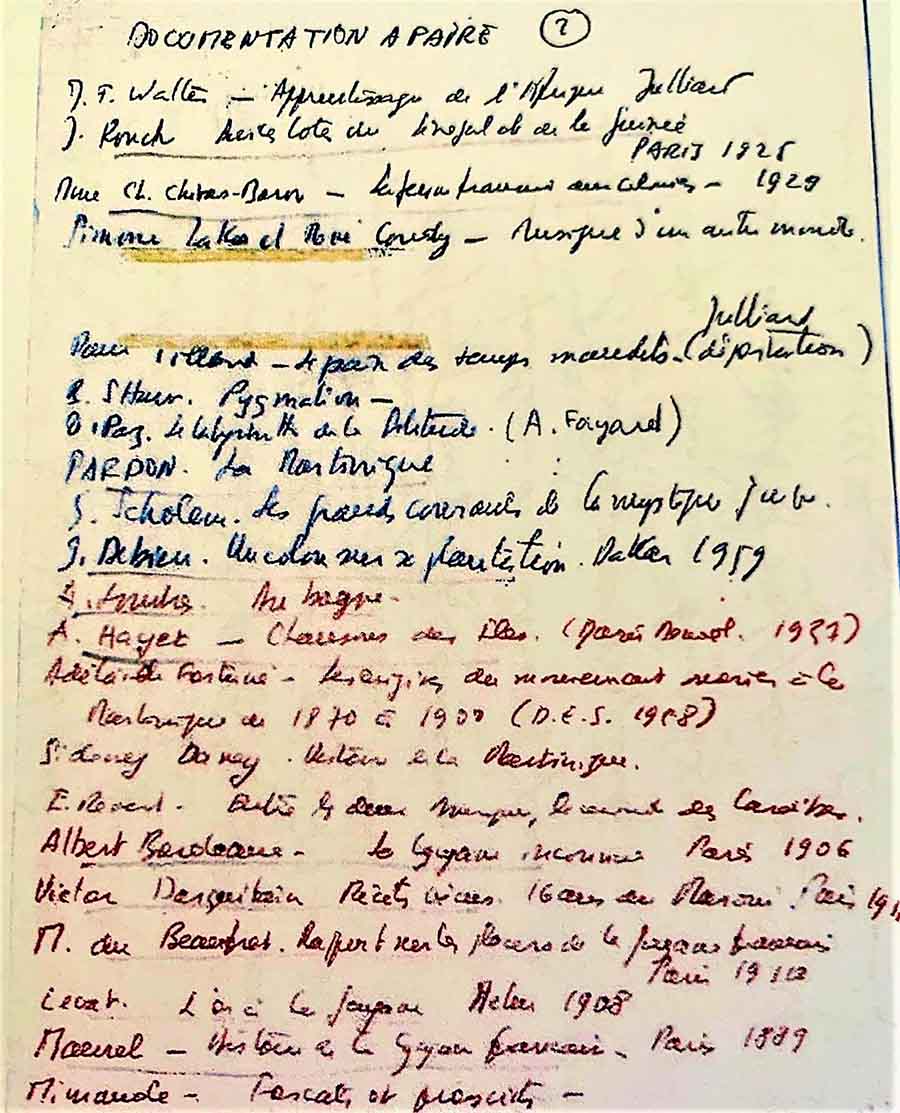 DOCUMENTATION A FAIRE ②
J. F. Walter — Apprentissage de l'Afrique Julliard
J. Rouch Sur les Côtes du Sénégal et de la Guinée
PARIS 1925
Mme Ch. Chivas-Baron — La femme française aux colonies — 1929
Simone et Cousty — Musique d'un autre monde.
Julliard
Paul Tillard — Le pain des temps maudits — (déportation)
B. Shaw. Pygmalion —
O. Paz. Le labyrinthe de la Solitude. (A. Fayard)
PARDON. La Martinique
G. Scholem. Les grands courants de la mystique juive.
G. Debien. Un colon sur sa plantation. Dakar 1959
Au bagne.
A. Hayet — Chansons des Iles. (Paris Denoël. 1937)
Adélaïde Fortuné — Les origines du mouvement ouvrier à la
Martinique de 1870 à 1900 (D.E.S.)
Sidney Daney. Histoire de la Martinique.
E. Revert. Entre les deux Amériques, le monde des Caraïbes.
Albert Bordeaux — La Guyane inconnue Paris 1906
Victor Darquitain Récits vécus. 16 ans au Maroni Paris
M. du Beaufret. Rapport sur les placers de la Guyane française
Paris 1910
Levat. L'or à la Guyane 1908
Maurel — Histoire de la Guyane française — Paris 1889
Mimande — Forçats et proscrits —